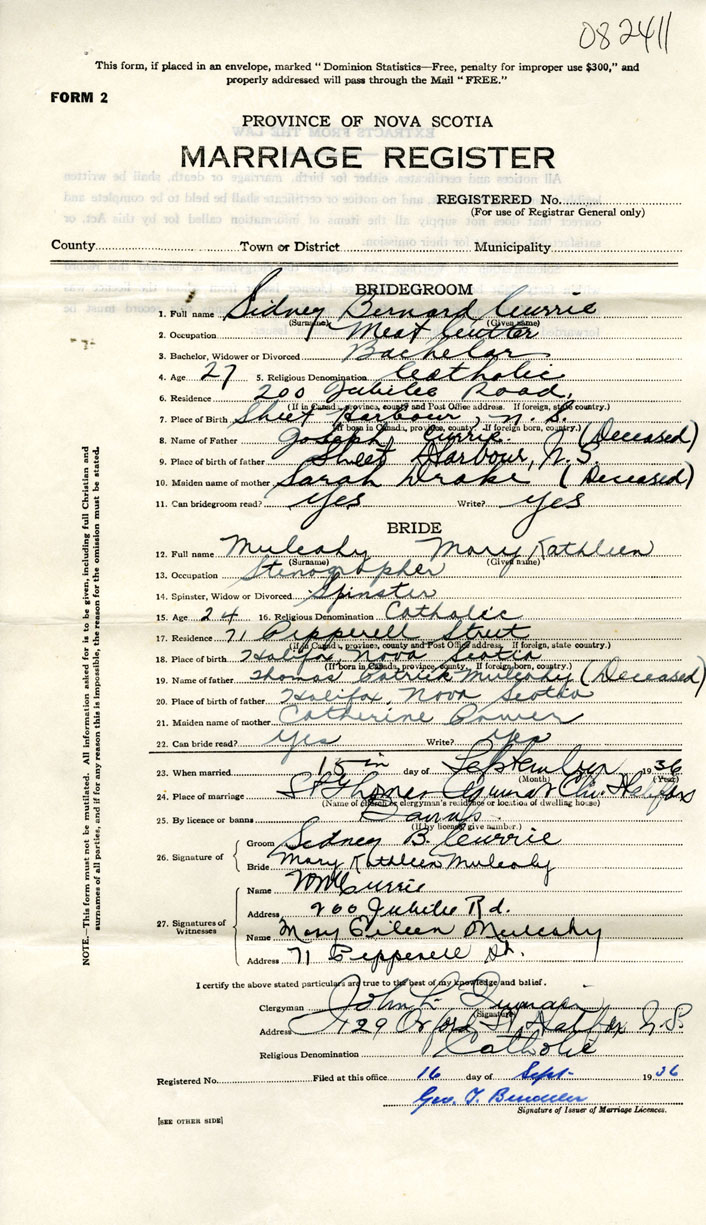 082411
This form, if placed in an envelope, marked "Dominion Statistics—Free, penalty for improper use $300," and
properly addressed will pass through the Mail "FREE."
FORM 2
PROVINCE OF NOVA SCOTIA
MARRIAGE REGISTER
REGISTERED No.
(For use of Registrar General only)
County Town or District Municipality
BRIDEGROOM
1. Full name Sidney Bernard Currie
(Surname) (Given name)
2. Occupation Meat Cutter
3. Bachelor, Widower or Divorced Bachelor
4. Age 27 5. Religious Denomination Catholic
6. Residence 200 Jubilee Road,
(If in Canada, province, county and Post Office address. If foreign, state country.)
7. Place of Birth Sheet Harbour, N.S.
(If born in Canada, province, county. If foreign born, country.)
8. Name of Father Joseph Currie. (Deceased)
9. Place of birth of father Sheet Harbour, N.S
10. Maiden name of mother Sarah Drake (Deceased)
11. Can bridegroom read? yes Write? yes
BRIDE
12. Full name Mulcahy Mary Kathleen
(Surname) (Given name)
13. Occupation Stenographer
14. Spinster, Widow or Divorced Spinster
15. Age 24 16. Religious Denomination Catholic
17. Residence 71 Pepperell Street
(If in Canada, province, county and Post Office address. If foreign, state country.)
18. Place of birth Halifax, Nova Scotia
(If born in Canada, province, county. If foreign born, country.)
19. Name of father Thomas Patrick Mulcahy (Deceased)
20. Place of birth of father Halifax, Nova Scotia
21. Maiden name of mother Catherine Power
22. Can bride read? yes Write? yes
23. When married 15 day of September 1936
(Month) (Year)
24. Place of marriage St Thomas Halifax
(Name of church or clergyman's residence or location of dwelling house)
25. By licence or banns Banns
(If by licence give number.)
26. Signature of Groom Sidney B. Currie
Bride Mary Kathleen Mulcahy
27. Signatures of Witnesses Name Currie
Address 200 Jubilee Rd.
Name Mary Eileen Mulcahy
Address 71 Pepperell St.
I certify the above stated particulars are true to the best of my knowledge and belief.
Clergyman John L.
(Signature)
Address Oxford St, Halifax N.S.
Religious Denomination Catholic
Registered No. Filed at this office 16 day of Sept 1936
Geo. T.
Signature of Issuer of Marriage Licences.
[SEE OTHER SIDE]
NOTE.—This form must not be mutilated. All information asked for is to be given, including full Christian and
surnames of all parties, and if for any reason this is impossible, the reason for the omission must be stated.